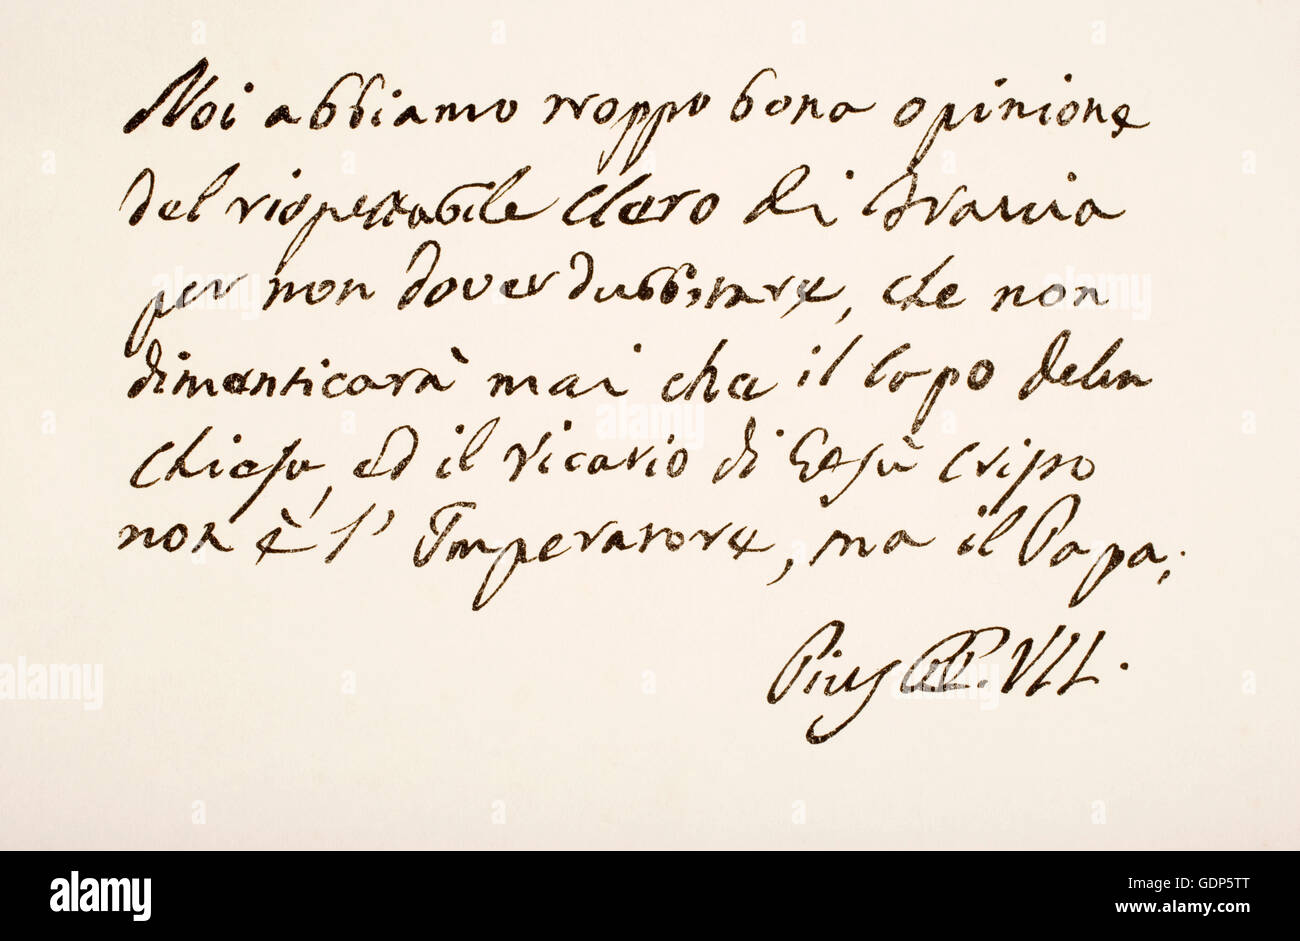 Noi abbiamo troppo bona opinione
del rispettabile Clero di Francia
per non dover dubbitare, che non
dimenticarà mai che il Capo della
Chiesa, ed il Vicario di Gesù Cristo
non è l'Imperatore, ma il Papa;
Pius PP. VII.
alamy
Image ID: GDP5TT
www.alamy.com